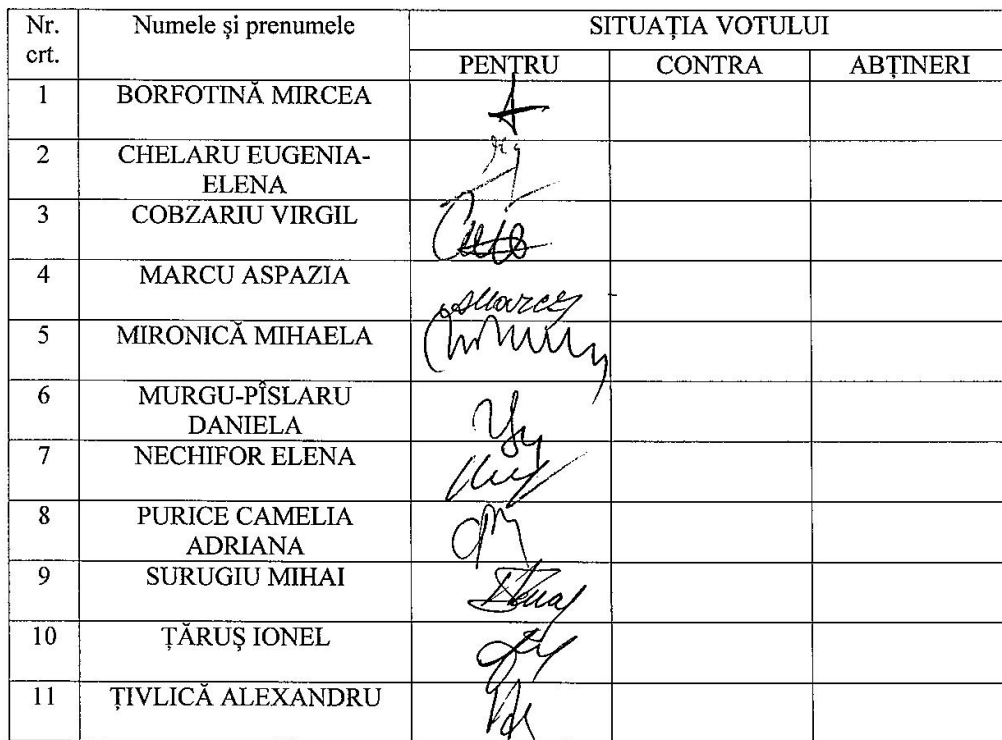 Nr. Numele și prenumele SITUAȚIA VOTULUI
crt.
PENTRU CONTRA ABȚINERI
1 BORFOTINĂ MIRCEA
2 CHELARU EUGENIA-
ELENA
3 COBZARIU VIRGIL
4 MARCU ASPAZIA
5 MIRONICĂ MIHAELA
6 MURGU-PÎSLARU
DANIELA
7 NECHIFOR ELENA
8 PURICE CAMELIA
ADRIANA
9 SURUGIU MIHAI
10 ȚĂRUȘ IONEL
11 ȚIVLICĂ ALEXANDRU